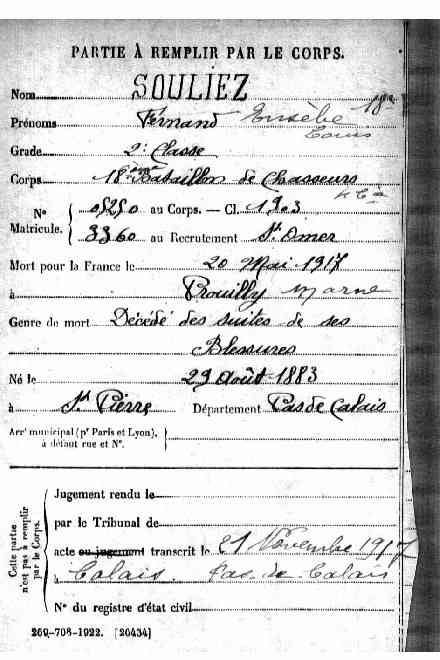 PARTIE À REMPLIR PAR LE CORPS.
Nom SOULIEZ 18e
Prénoms Fernand Eusèbe
Louis
Grade 2e Classe
Corps 18ème Bataillon de Chasseurs
à Pied
No 05250 au Corps. — Cl. 1903
Matricule. 3360 au Recrutement St Omer
Mort pour la France le 20 Mai 1917
à Prouilly Marne
Genre de mort Décédé des suites de ses
Blessures
Né le 29 Août 1883
à St Pierre Département Pas de Calais
Arrt municipal (pr Paris et Lyon),
à défaut rue et No.
Cette partie
n'est pas à remplir
par le Corps.
Jugement rendu le
par le Tribunal de
acte ou jugement transcrit le 21 Novembre 1917
à Calais. Pas-de-Calais
No du registre d'état civil
269-708-1922. [20434]